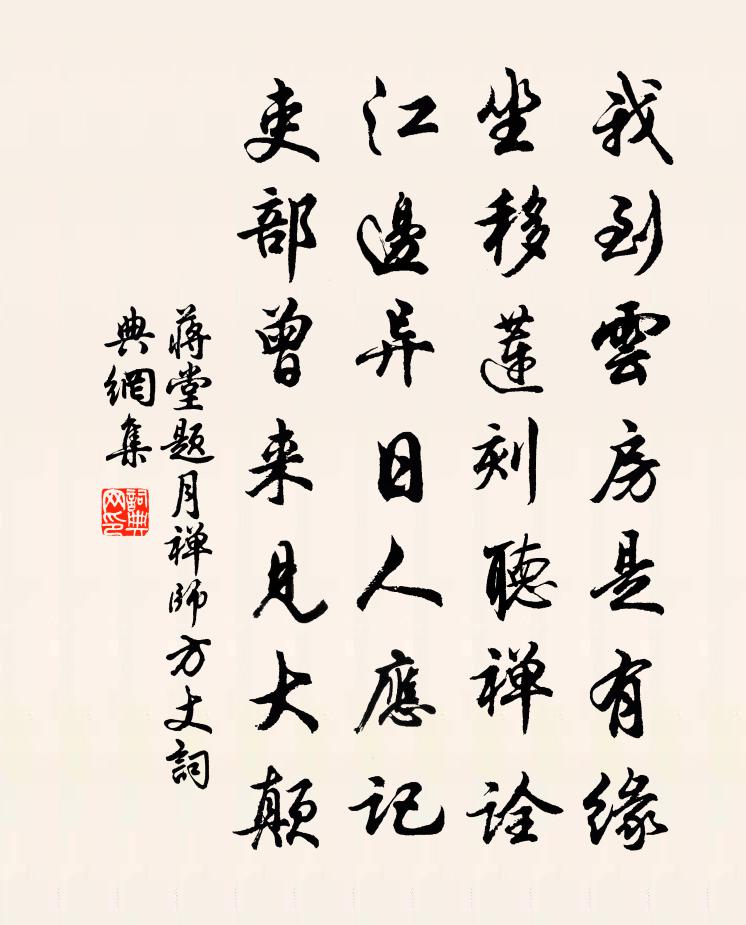 我到雲房是有緣
坐移蓮刻聽禅詮
江邊异日人應記
吏部曾来見大顛
蒋堂题月禅師方丈詞
典網集
詞典
网印